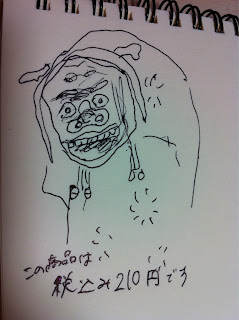 この商品は
税込み210円です